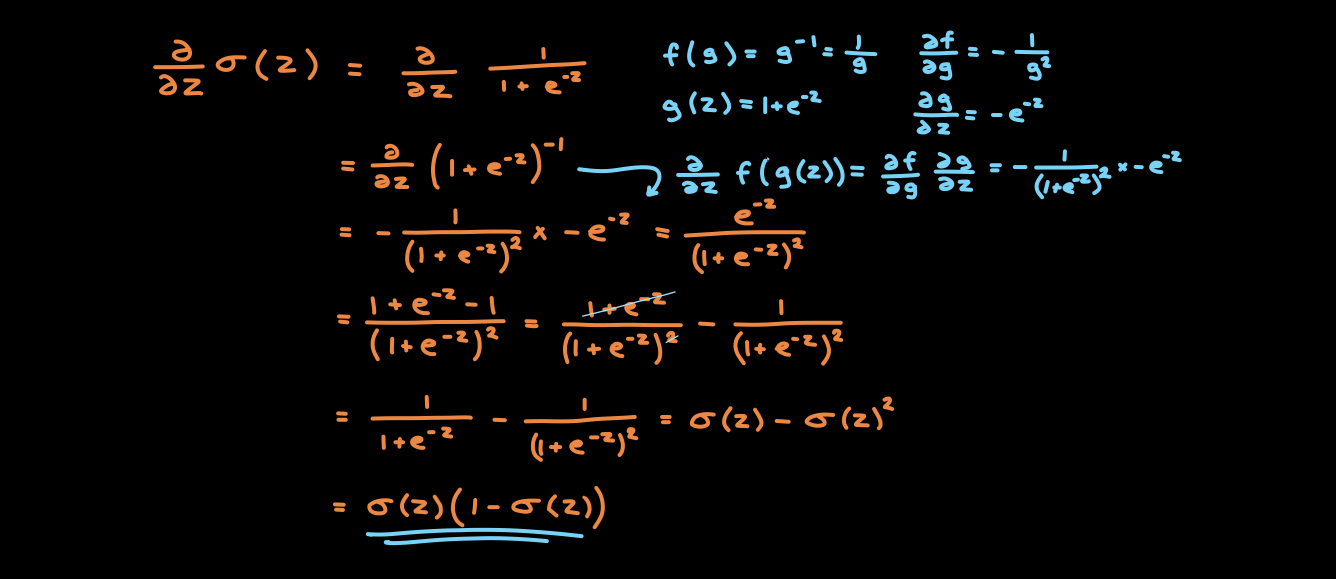 ∂/∂z σ(z) = ∂/∂z 1/(1 + e^-z)
f(g) = g^-1 = 1/g    ∂f/∂g = - 1/g^2
g(z) = 1+e^-z    ∂g/∂z = -e^-z
= ∂/∂z (1 + e^-z)^-1
∂/∂z f(g(z)) = ∂f/∂g ∂g/∂z = - 1/(1+e^-z)^2 × -e^-z
= - 1/(1 + e^-z)^2 × -e^-z = e^-z/(1 + e^-z)^2
= (1 + e^-z - 1)/(1 + e^-z)^2 = (1 + e^-z)/(1 + e^-z)^2 - 1/(1 + e^-z)^2
= 1/(1+e^-z) - 1/(1+e^-z)^2 = σ(z) - σ(z)^2
= σ(z)(1 - σ(z))